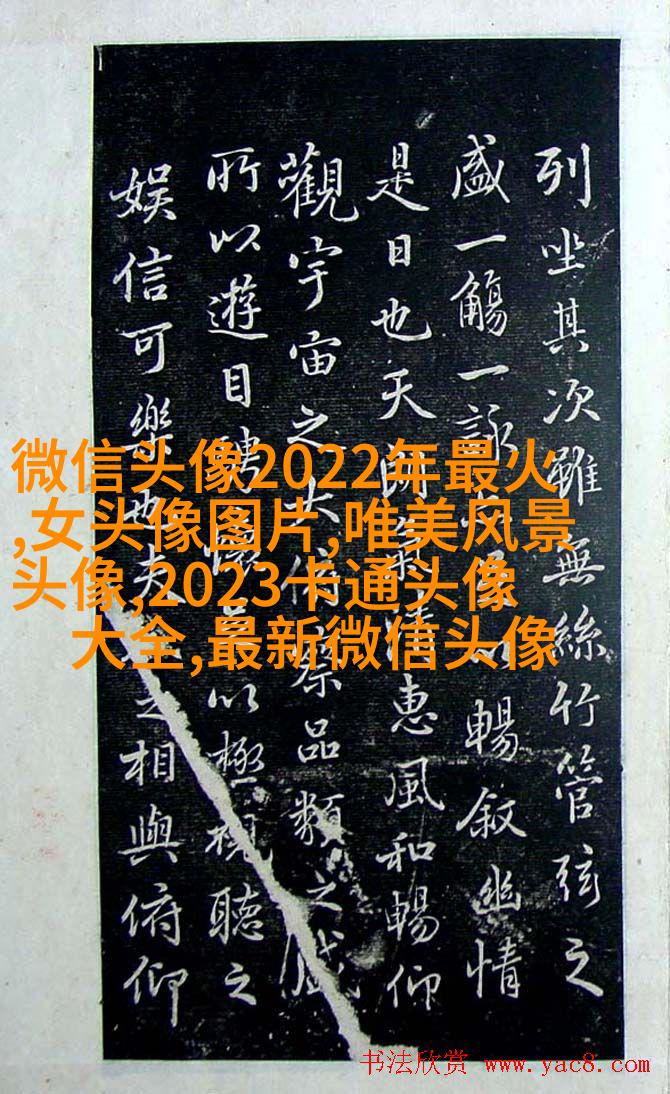 列坐其次雖無絲竹管弦之
盛一觴一詠以暢叙幽情
是日也天朗氣清惠風和暢仰
觀宇宙之大俯察品類之盛
所以遊目騁懷以極視聽之
娱信可樂也夫之相與俯仰
微信头像2022年最火
,女头像图片,唯美风景
头像,2023卡通头像
大全,最新微信头像
书法欣赏 www.yac8.com